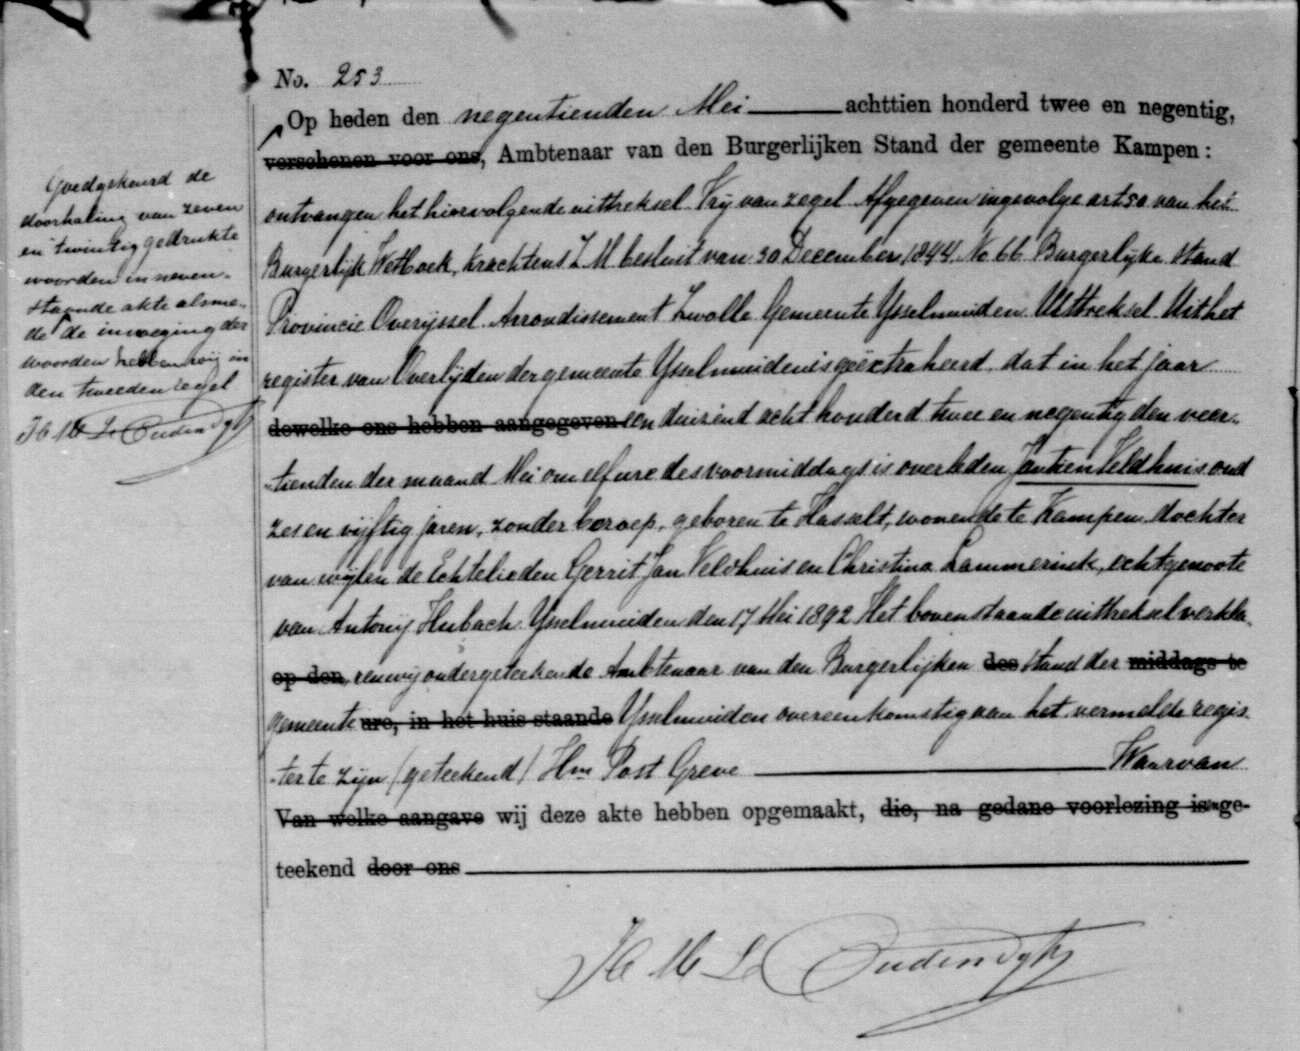 No. 253
Op heden den negentienden Mei achttien honderd twee en negentig,
verschenen voor ons, Ambtenaar van den Burgerlijken Stand der gemeente Kampen:
ontvangen het hiervolgende uittreksel Vrij van zegel Afgegeven ingevolge art 50 van het
Burgerlijk Wetboek, Krachtens Z M besluit van 30 December 1844 No 66 Burgerlijke stand
Provincie Overijssel Arrondissement Zwolle Gemeente Ysselmuiden Uittreksel Uit het
register van Overlijden der gemeente Ysselmuiden is geëxtraheerd, dat in het jaar
dewelke ons hebben aangegeven een duizend acht honderd twee en negentig den veer-
-tienden der maand Mei om elf ure des voormiddags is overleden Jantien Veldhuis oud
zes en vijftig jaren, zonder beroep, geboren te Hasselt, wonende te Kampen dochter
van wijlen de Echtelieden Gerrit Jan Veldhuis en Christina Lammerink, echtgenoote
van Antonij Hubach Ysselmuiden den 17 Mei 1892 Het bovenstaande uittreksel verkla-
op den, ren wij ondergeteekende Ambtenaar van den Burgerlijken des stand der middags te
gemeente ure, in het huis staande Ysselmuiden overeenkomstig aan het vermelde regis-
-ter te zijn (geteekend) Hm Post Greve Waarvan
Van welke aangave wij deze akte hebben opgemaakt, die, na gedane voorlezing is en ge-
teekend door ons
Goedgekeurd de
doorhaling van zeven
en twintig gedrukte
woorden in neven-
staande akte alsme-
de de invoeging der
woorden hebben wij in
den tweeden regel